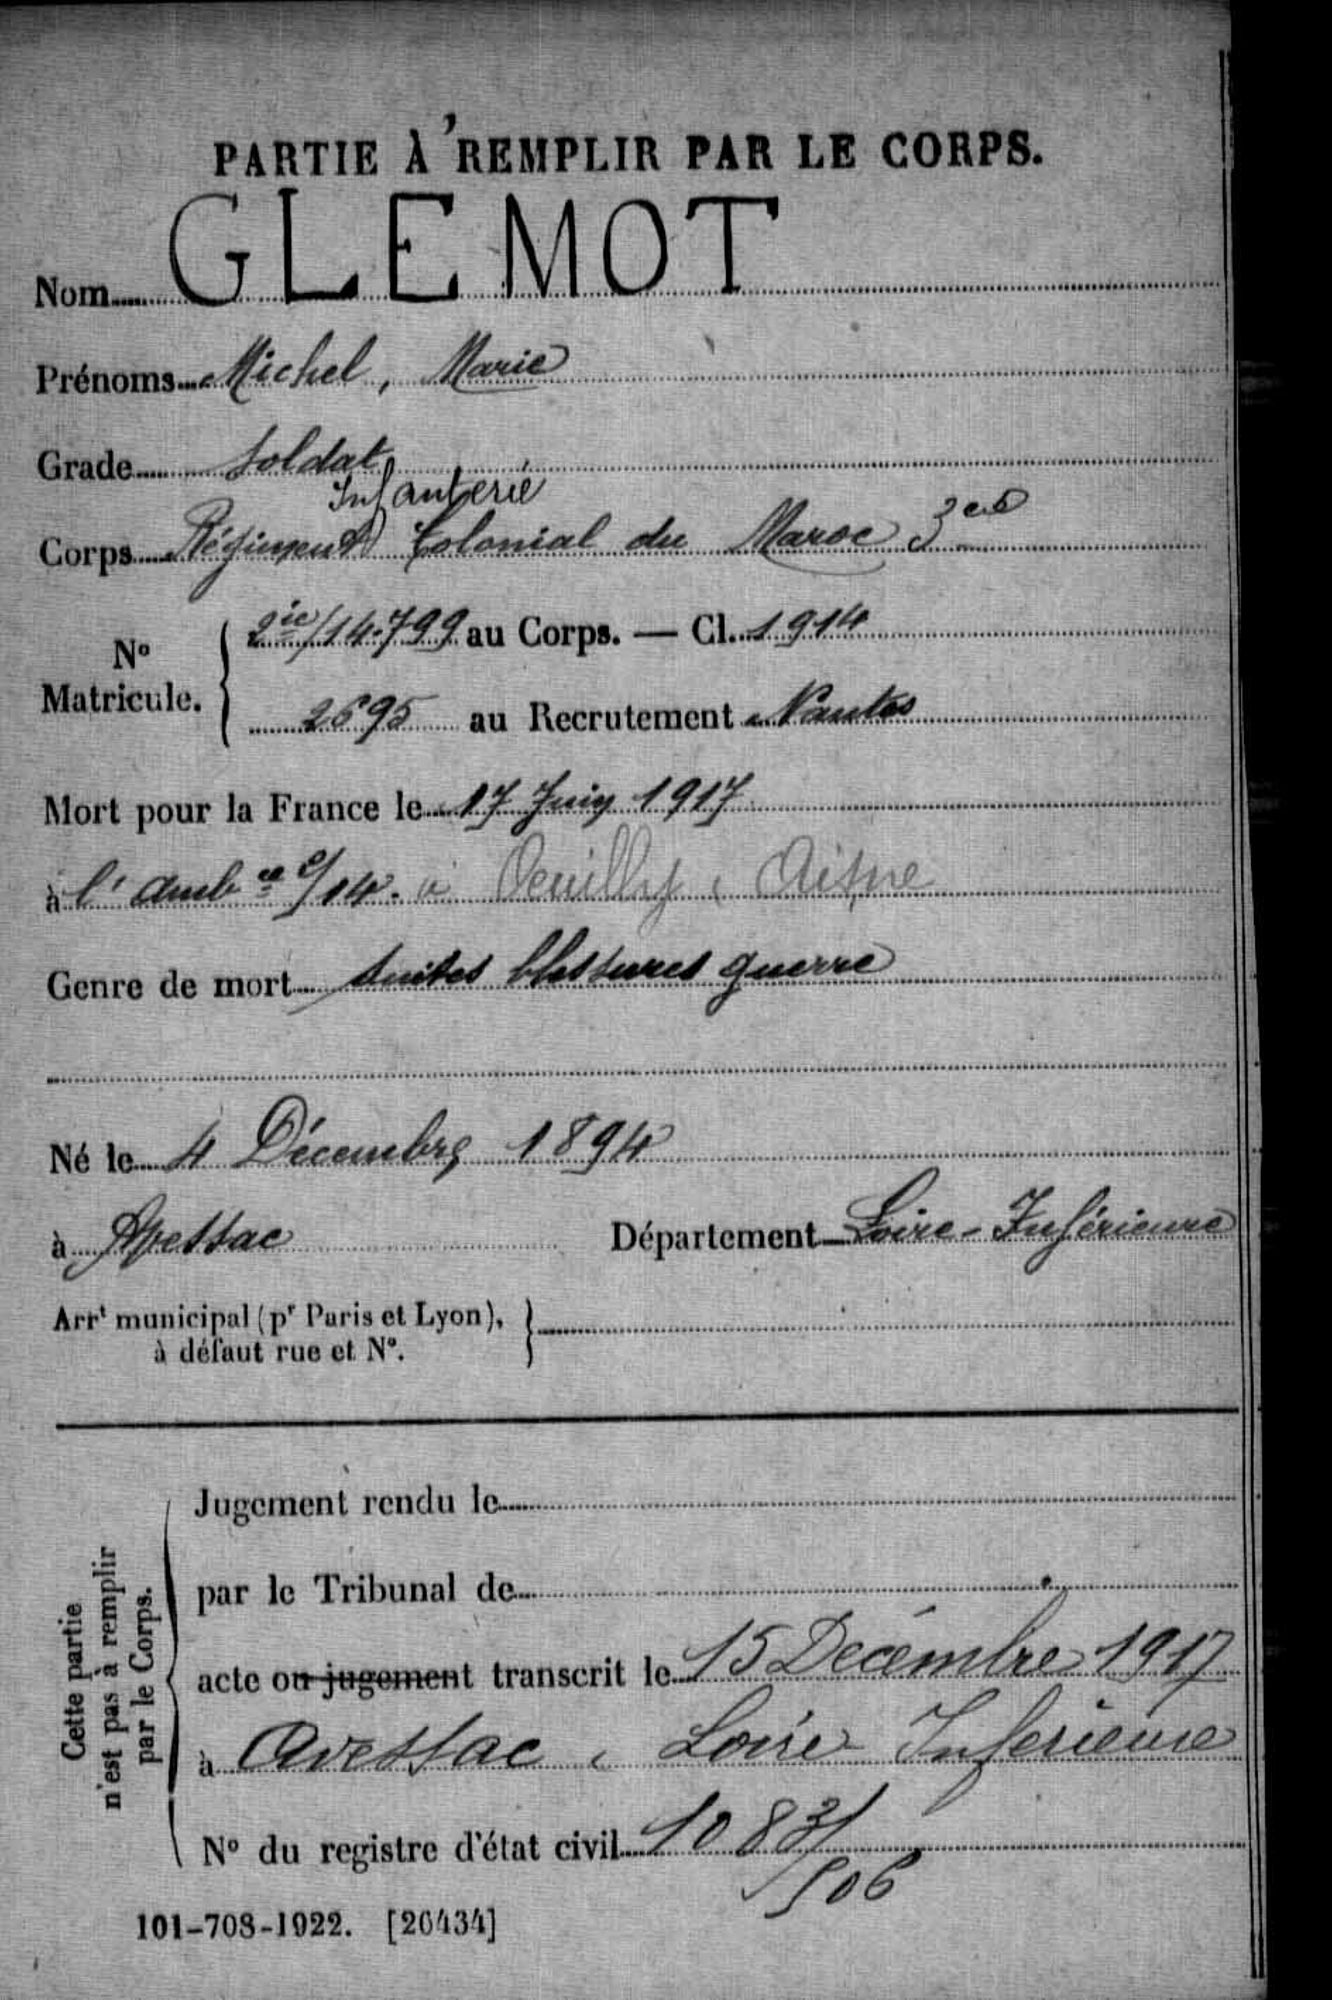 PARTIE À REMPLIR PAR LE CORPS.
Nom GLEMOT
Prénoms Michel, Marie
Grade Soldat
Infanterie
Corps Régiment Colonial du Maroc 3e Cie
2ie/14.799 au Corps. — Cl. 1914
N° Matricule.
2695 au Recrutement Nantes
Mort pour la France le 17 Juin 1917
à l'Ambce 9/14. à Oeuilly, Aisne
Genre de mort suites blessures guerre
Né le 4 Décembre 1894
à Avessac Département Loire-Inférieure
Arrt municipal (pr Paris et Lyon),
à défaut rue et N°.
Cette partie
n'est pas à remplir
par le Corps.
Jugement rendu le
par le Tribunal de
acte ou jugement transcrit le 15 Décembre 1917
à Avessac, Loire Inférieure
N° du registre d'état civil 1083/
506
101-708-1922. [26434]